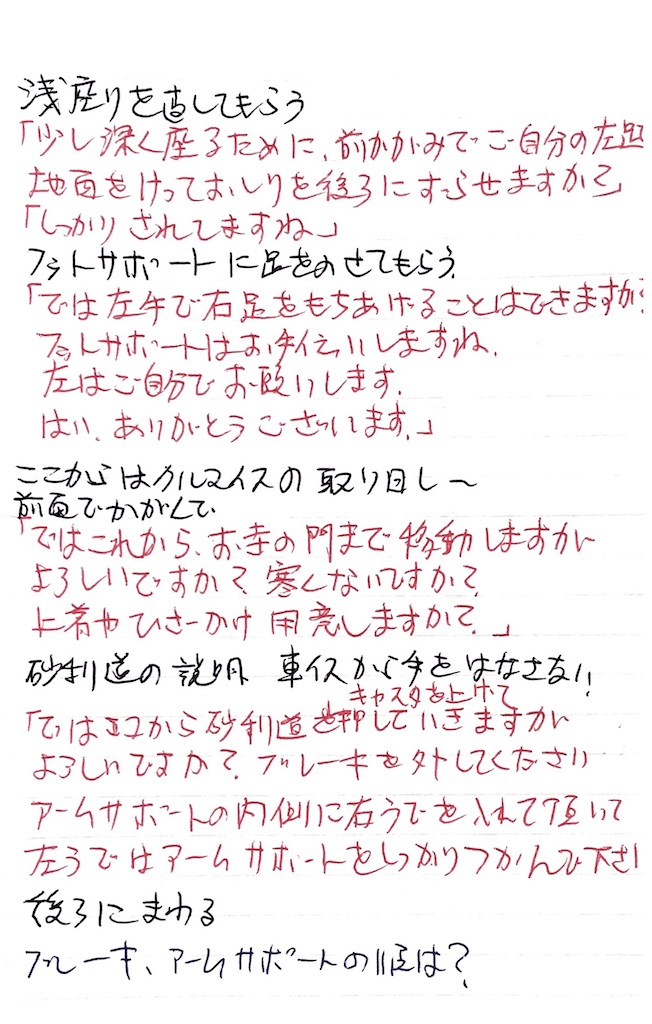 浅座りを直してもらう
「少し深く座るために、前かがみでご自分の左足
地面をけっておしりを後ろにずらせますか?」
「しっかりされてますね」
フットサポートに足をのせてもらう
「では左手で右足をもちあげることはできますか?
フットサポートはお手伝いしますね、
左はご自分でお願いします。
はい、ありがとうございます。」
ここからはクルマイスの取り回し〜
前面でかがんで
「ではこれから、お寺の門まで移動しますが
よろしいですか?寒くないですか?
上着やひざかけ用意しますか?」
砂利道の説明 車イスから手をはなさない!
キャスタを上げて
「ではココから砂利道を押していきますが
よろしいですか?ブレーキを外してください
アームサポートの内側に右うでを入れて頂いて
左うではアームサポートをしっかりつかんで下さい
後ろにまわる
ブレーキ、アームサポートの順は?